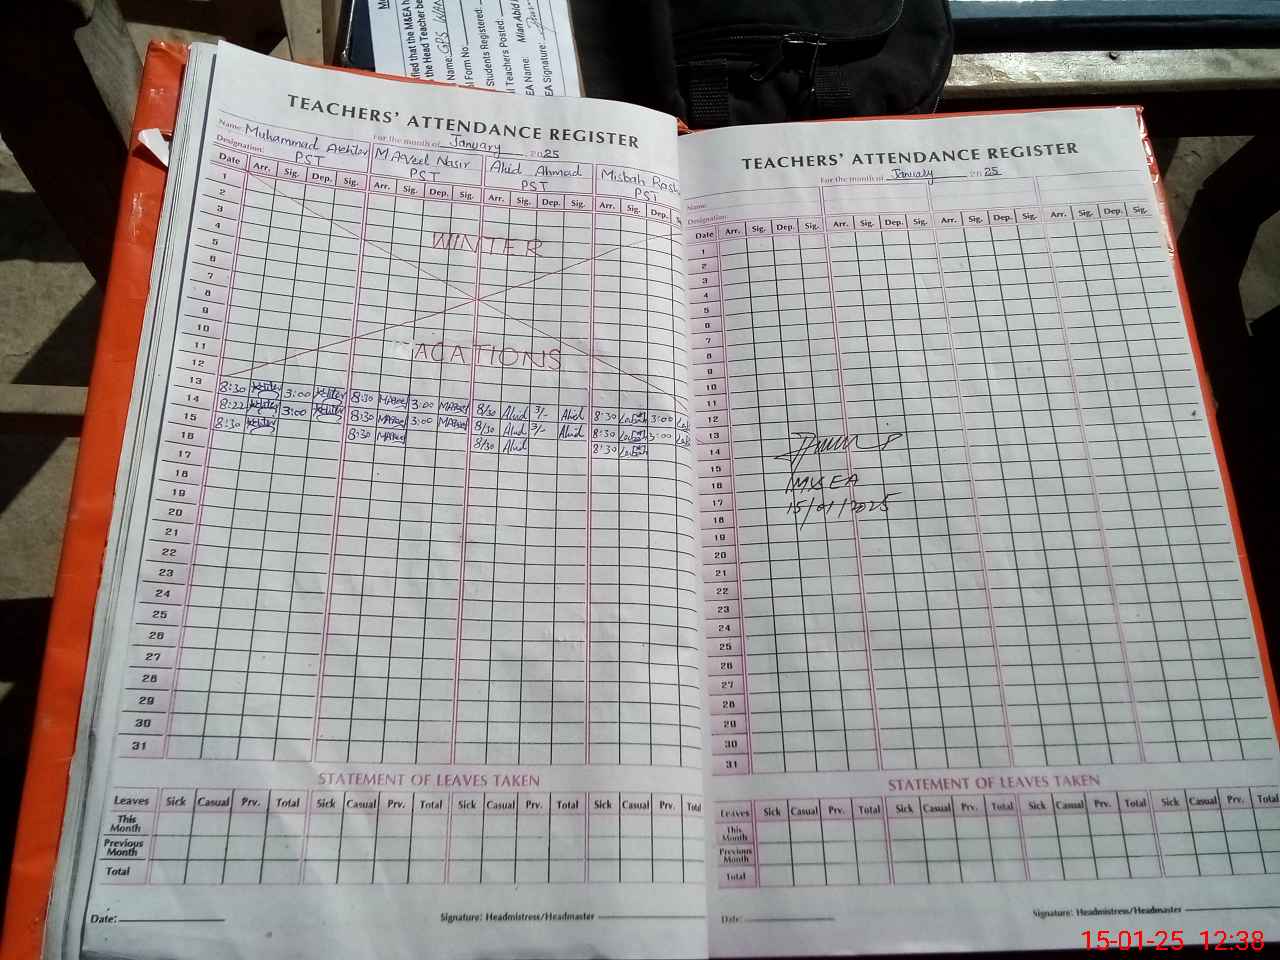 ified that the M&EA h
the Head Teacher be
Name: GPS WAN
l Form No
Students Registered:
l Teachers Posted:
EA Name: Mian Abid
EA Signature:
TEACHERS' ATTENDANCE REGISTER
Name: Muhammad Akhter For the month of January 2025
M A Veel Nasir Abid Ahmad Misbah Rash
Designation: PST PST PST PST
Date Arr. Sig. Dep. Sig. Arr. Sig. Dep. Sig. Arr. Sig. Dep. Sig. Arr. Sig. Dep. S
1
2
3
4 WINTER
5
6
7
8
9
10
11 VACATIONS
12
13 8:30 Akhter 3:00 Akhter 8:30 3:00 8/30 Abid 3/- Abid 8:30 3:00
14 8:22 Akhter 3:00 Akhter 8:30 3:00 8/30 Abid 3/- Abid 8:30 3:00
15 8:30 Akhter 8:30 8/30 Abid 8:30
16
17
18
19
20
21
22
23
24
25
26
27
28
29
30
31
STATEMENT OF LEAVES TAKEN
Leaves Sick Casual Prv. Total Sick Casual Prv. Total Sick Casual Prv. Total Sick Casual Prv. Total
This Month
Previous Month
Total
Date: Signature: Headmistress/Headmaster
TEACHERS' ATTENDANCE REGISTER
For the month of January 2025
Name:
Designation:
Date Arr. Sig. Dep. Sig. Arr. Sig. Dep. Sig. Arr. Sig. Dep. Sig. Arr. Sig. Dep. Sig.
1
2
3
4
5
6
7
8
9
10
11
12
13
14
15
16 M&EA
17 15/01/2025
18
19
20
21
22
23
24
25
26
27
28
29
30
31
STATEMENT OF LEAVES TAKEN
Leaves Sick Casual Prv. Total Sick Casual Prv. Total Sick Casual Prv. Total Sick Casual Prv. Total
This Month
Previous Month
Total
Date: Signature: Headmistress/Headmaster
15-01-25 12:38